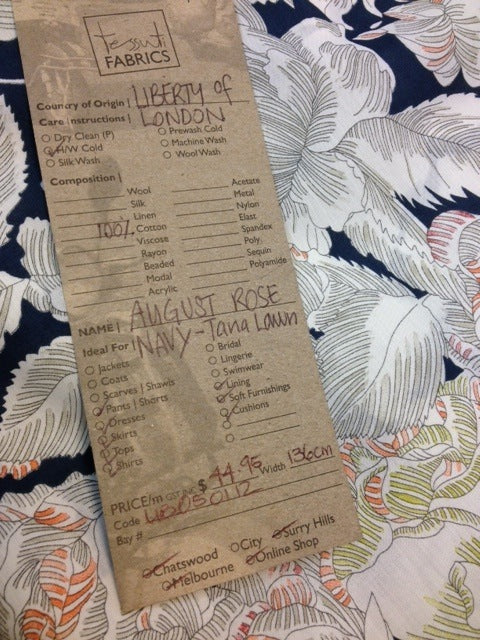 Tessuti
FABRICS
Country of Origin | LIBERTY of
Care Instructions | LONDON
Dry Clean (P) Prewash Cold
H/W Cold Machine Wash
Silk Wash Wool Wash
Composition |
Wool Acetate
Silk Metal
Linen Nylon
100% Cotton Elast
Viscose Spandex
Rayon Poly.
Beaded Sequin
Modal Polyamide
Acrylic
NAME | AUGUST ROSE
Ideal For | NAVY - Tana Lawn
Jackets Bridal
Coats Lingerie
Scarves | Shawls Swimwear
Pants | Shorts Lining
Dresses Soft Furnishings
Skirts Cushions
Tops
Shirts
PRICE/m GST INC $ 44.95 Width 136cm
Code
Bay #
Chatswood City Surry Hills
Melbourne Online Shop